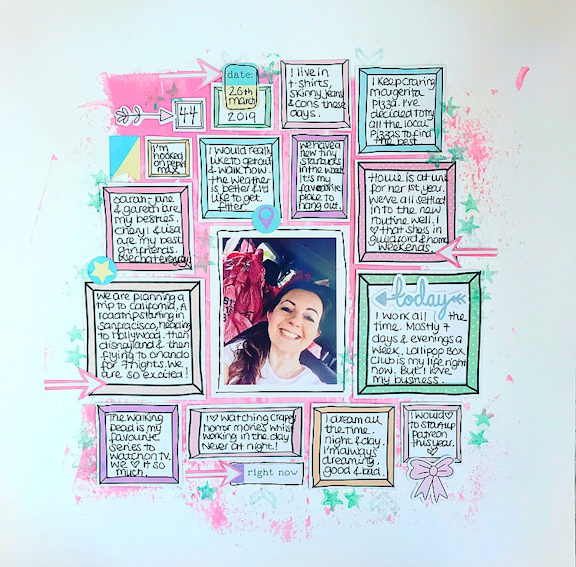 date:
26th
march
2019
44
I live in
t-shirts,
skinny jeans
& cons these
days.
I keep craving
maugerita
pizza. I've
decided to try
all the local
pizzas to find
the best.
I'm
hooked
on pepsi
max
I would really
like to get out
& walk now.
The weather
is better & I'd
like to get
fitter
we have a
new tiny
starbucks
in the
It's my
favourite
place to
hang out.
Hollie is at uni
for her 1st year.
We've all settled
into the new
routine well. I
♡ that she's in
guildford & home
weekends.
Sarah-Jane
& gareth are
my besties.
Cheryl & Lisa
are my best
girlfriends.
We chat everyday
We are planning a
trip to California. A
roadtrip starting in
sanfracisco, heading
to hollywood. then
disneyland & then
flying to orlando
for 7 nights. We
are so excited!
today
I work all the
time. Mostly 7
days & evenings a
week. Lollipop Box
Club is my life right
now. But I love
my business.
The walking
dead is my
favourite
series to
watch on TV.
We ♡ it so
much.
I ♡ watching crappy
horror movies whilst
working in the day
Never at night!
I dream all
the time.
night & day.
I'm always
dreaming,
good & bad.
I would ♡
to start up
Patreon
this year.
♡
right now